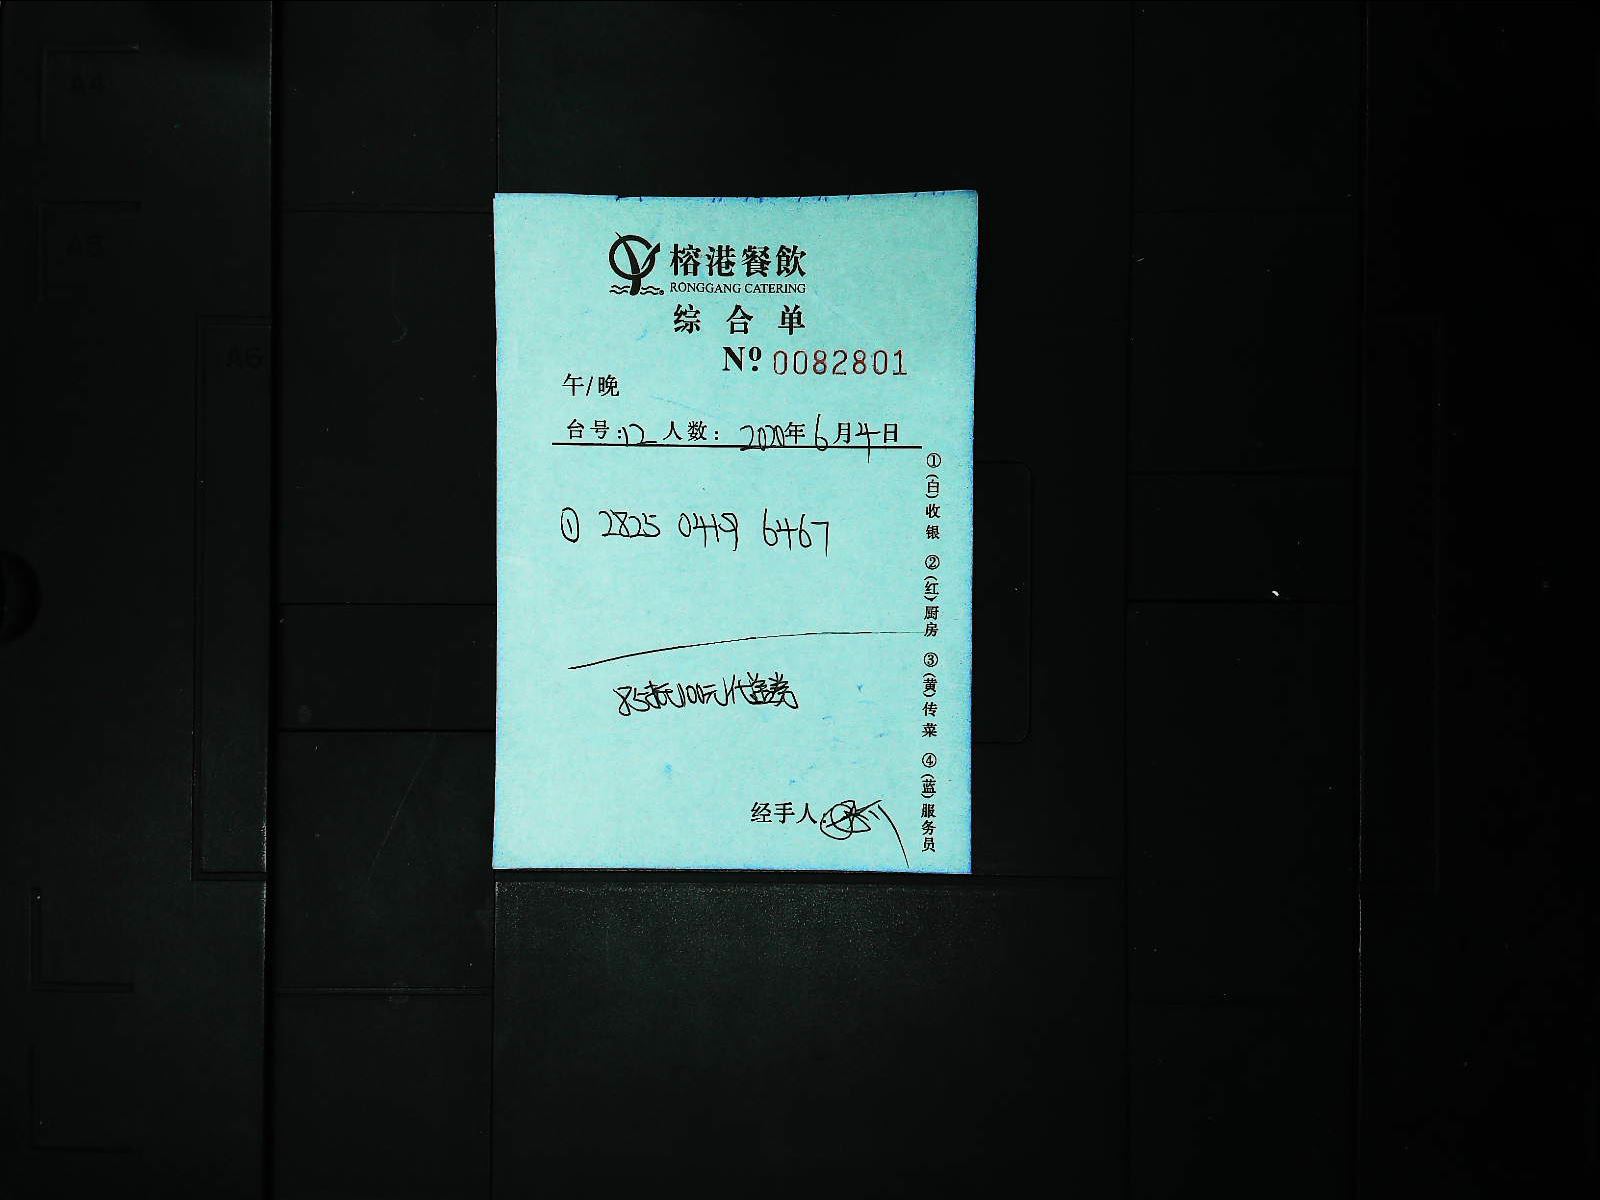 榕港餐飲
RONGGANG CATERING
综合单
Nº 0082801
午/晚
台号:12 人数: 2020年6月4日
① 2825 0419 6467
85抵100元代金券
经手人:
①(白)收银 ②(红)厨房 ③(黄)传菜 ④(蓝)服务员
A4
A5
A6